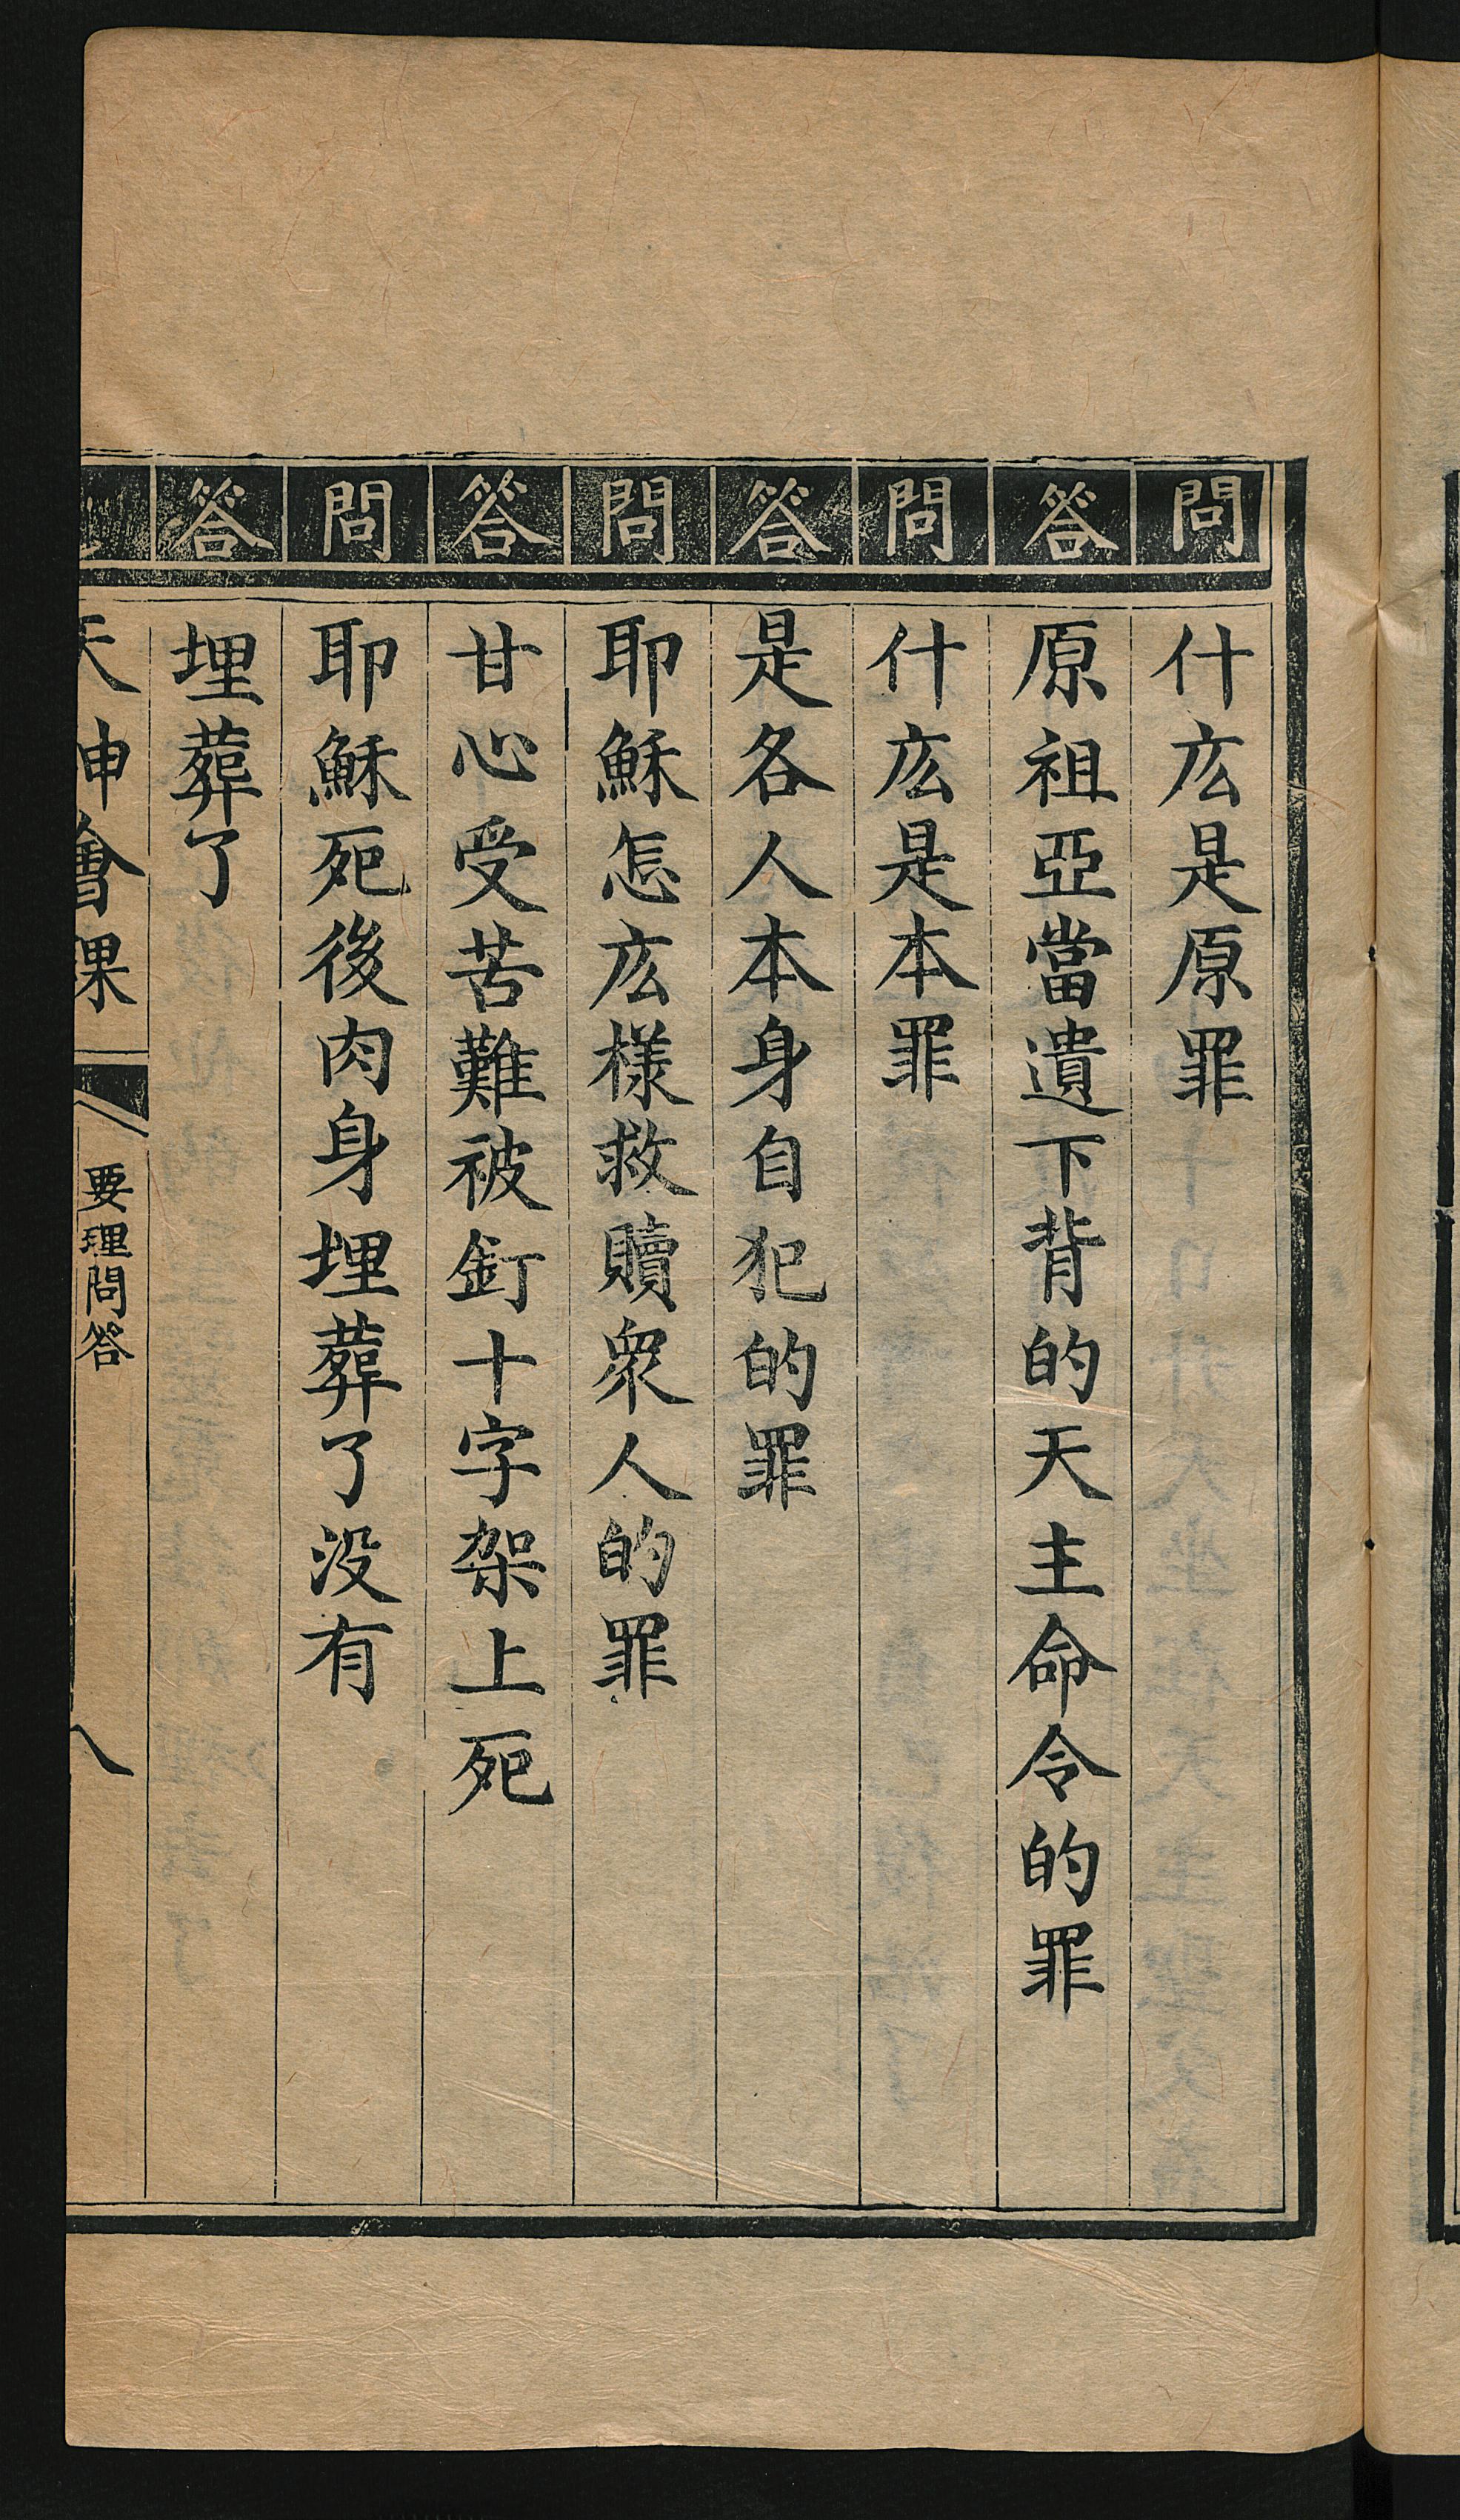 問 什庅是原罪
答 原祖亞當遺下背的天主命令的罪
問 什庅是本罪
答 是各人本身自犯的罪
問 耶穌怎庅樣救贖衆人的罪
答 甘心受苦難被釘十字架上死
問 耶穌死後肉身埋葬了没有
答 埋葬了
天神會課 要理問答 八